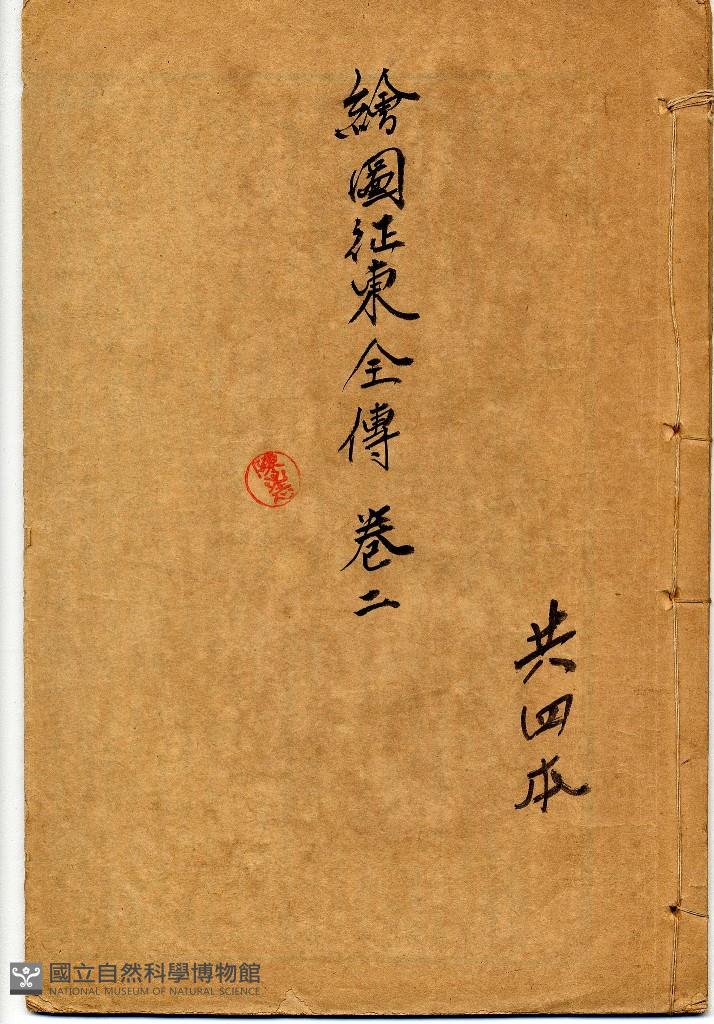 共四本
繪圖征東全傳 卷二
國立自然科學博物館
NATIONAL MUSEUM OF NATURAL SCIENCE